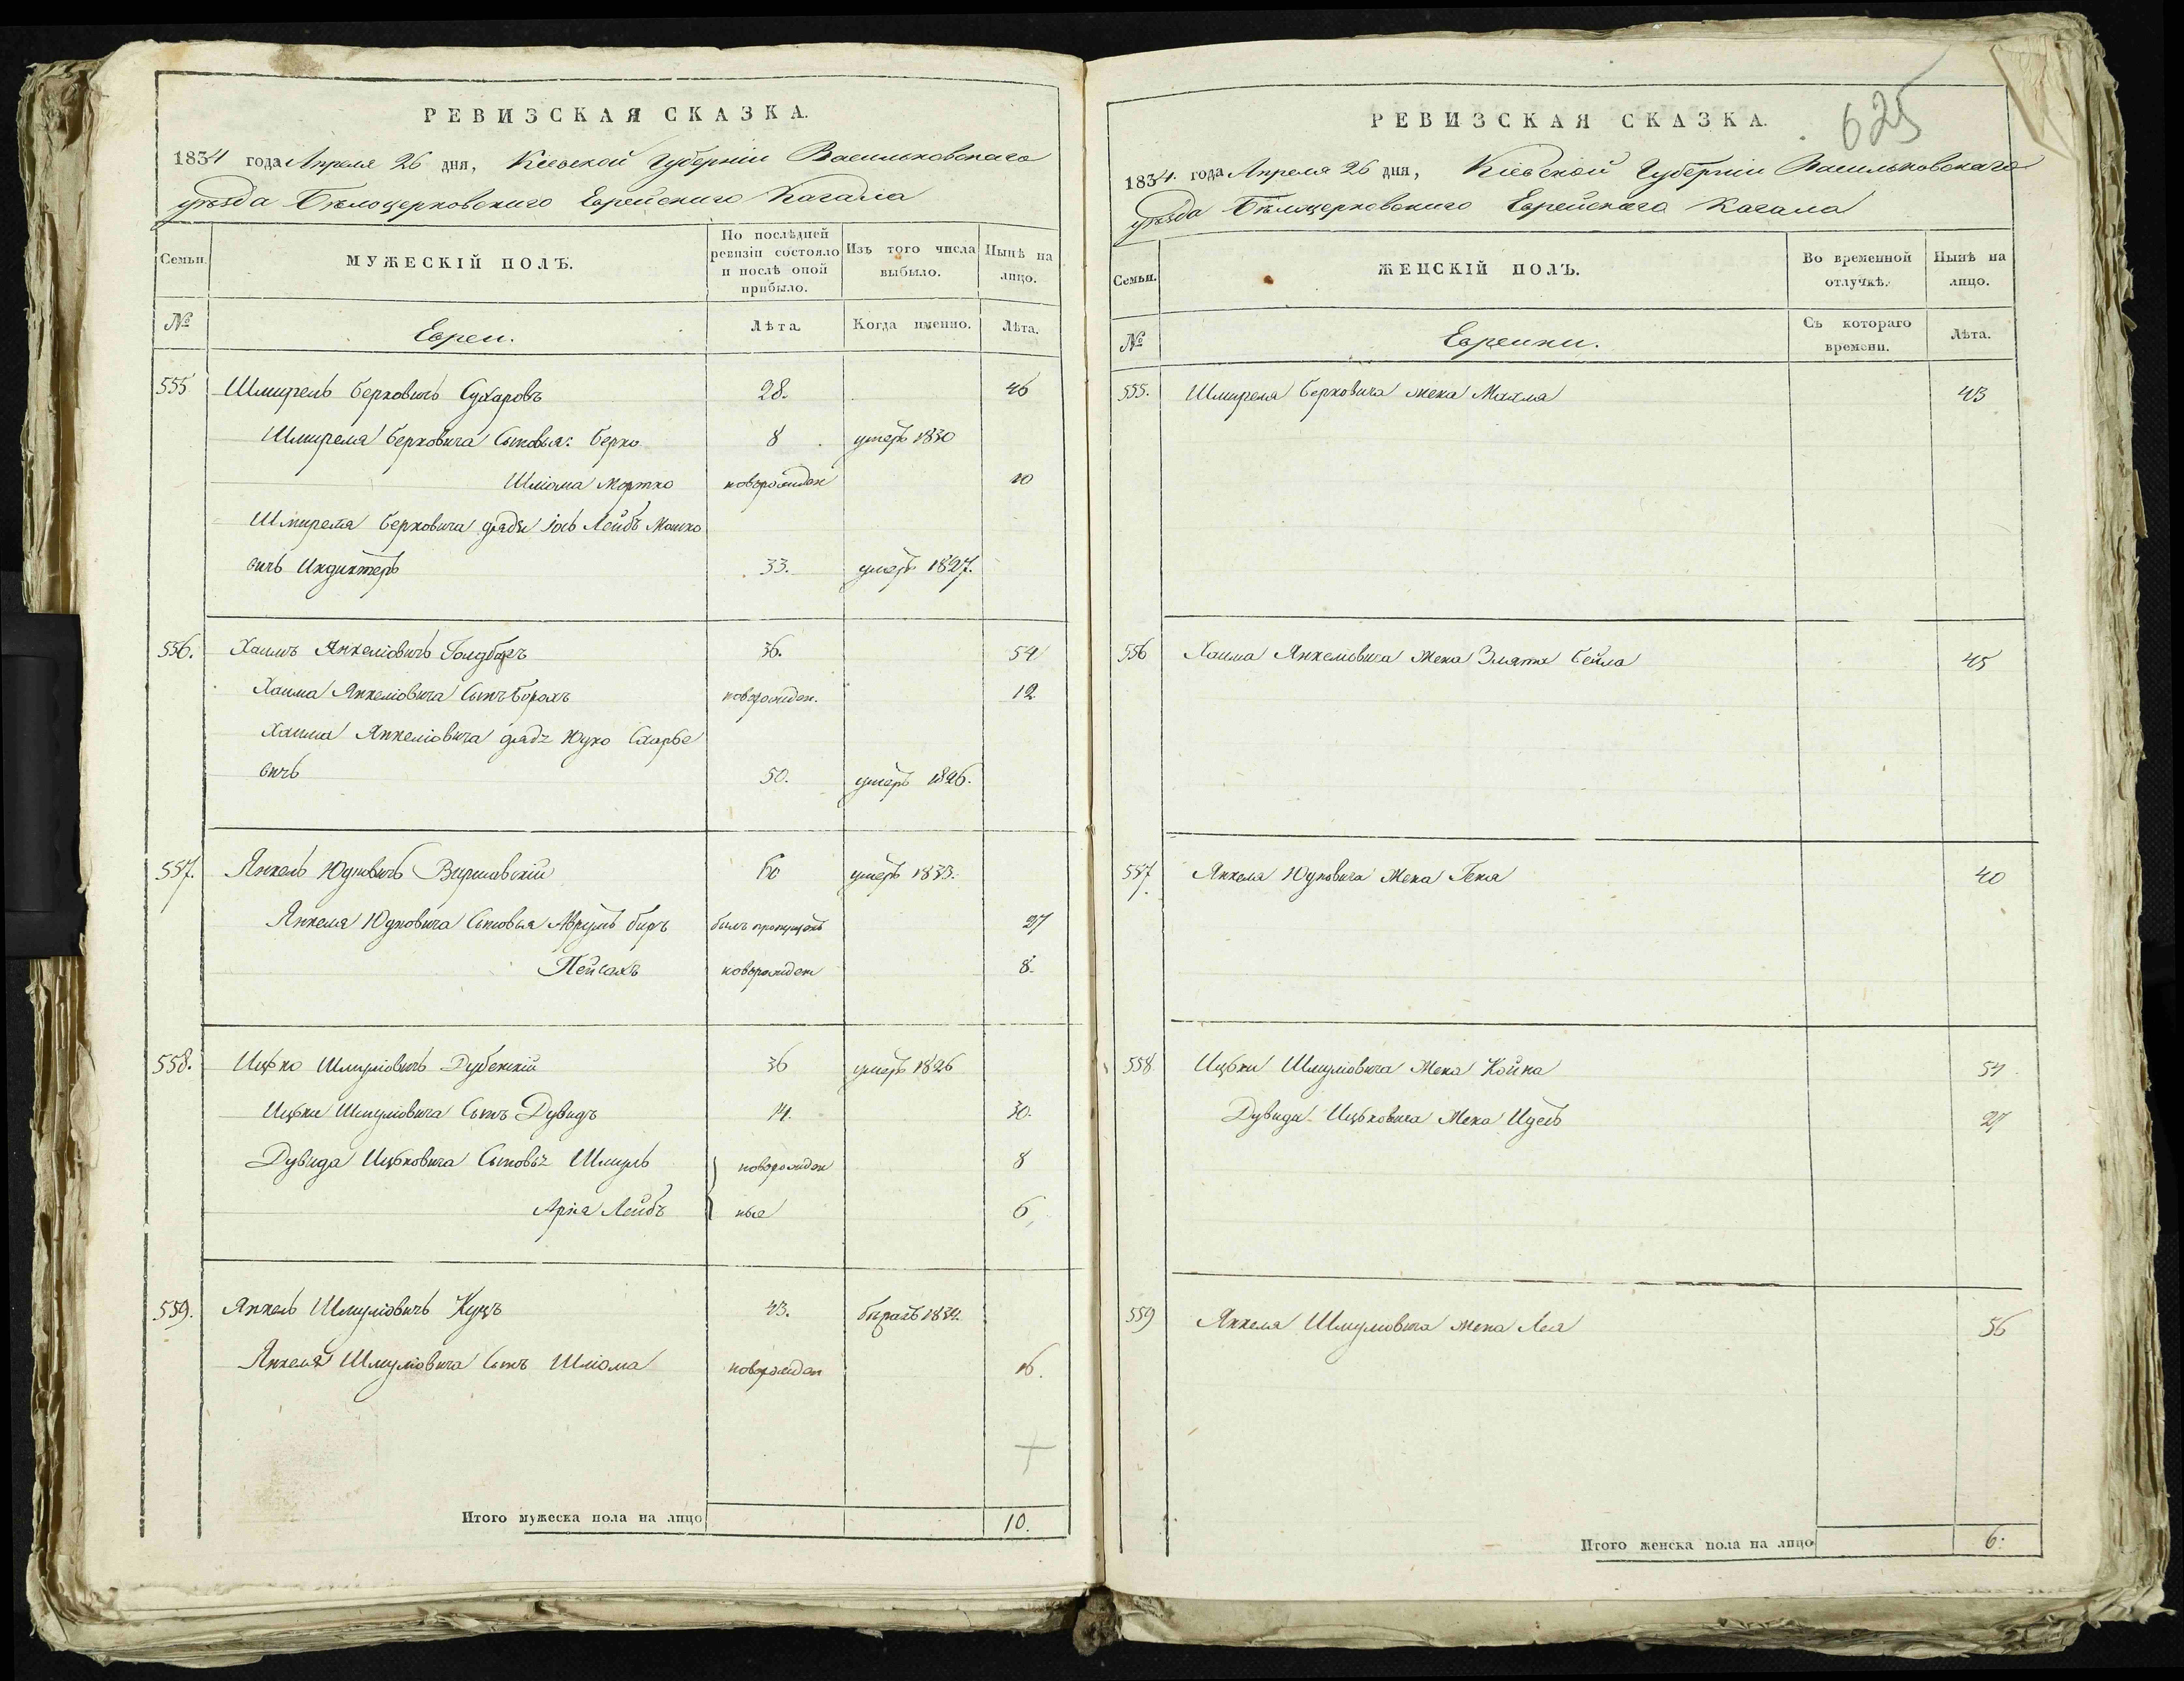 РЕВИЗСКАЯ СКАЗКА.
1834 года Апреля 26 дня, Кіевской Губерніи Васильковскаго
уѣзда Бѣлоцерковскаго Еврейскаго Кагала
Семьи.
МУЖЕСКІЙ ПОЛЪ.
По послѣдней ревизіи состояло и послѣ оной прибыло.
Изъ того числа выбыло.
Нынѣ на лицо.
№
Евреи.
Лѣта
Когда именно.
Лѣта.
555 Шмирель Берковичъ Сухаровъ 28. 46
Шмиреля Берковича Сыновья: Берко 8 умеръ 1830
Шліома Мортко новорожден 10
Шмиреля Берковича дядя Іось Лейбъ Мошко
вичъ Индиктеръ 33. умеръ 1827.
556. Хаимъ Янкеліовичъ 36. 54
Хаима Янкеліовича Сынъ Борохъ новорожден. 12
Хаима Янкеліовича дядя
вичъ 50. умеръ 1826.
557. Янкель Юдковичъ умеръ 1833.
Янкеля Юдковича Сыновья Аврумъ Беръ былъ пропущенъ 27
Пейсахъ новорожден 8
558. Ицко Шмуліовичъ Дубенскій 36 умеръ 1826
Ицьки Шмуліовича Сынъ Дувидъ 14. 30.
Дувида Ицьковича Сыновья Шмуль новорожден 8
Арія Лейбъ ные 6
559. Янкель Шмуліовичъ Куцъ 43. 1834.
Янкеля Шмуліовича Сынъ Шліома новорожден 16.
Итого мужеска пола на лицо 10.
625
РЕВИЗСКАЯ СКАЗКА.
1834 года Апреля 26 дня, Кіевской Губерніи Васильковскаго
уѣзда Бѣлоцерковскаго Еврейскаго Кагала
Семьи.
ЖЕНСКІЙ ПОЛЪ.
Во временной отлучкѣ.
Нынѣ на лицо.
№
Еврейки.
Съ котораго времени.
Лѣта.
555. Шмиреля Берковича жена Махля 43
556 Хаима Янкеліовича Жена Злата Бейла 45
557. Янкеля Юдковича Жена Геня 40
558 Ицьки Шмуліовича Жена Хайка 54
Дувида Ицьковича Жена Идесь 27
559 Янкеля Шмуліовича жена Леа 56
Итого женска пола на лицо 6.